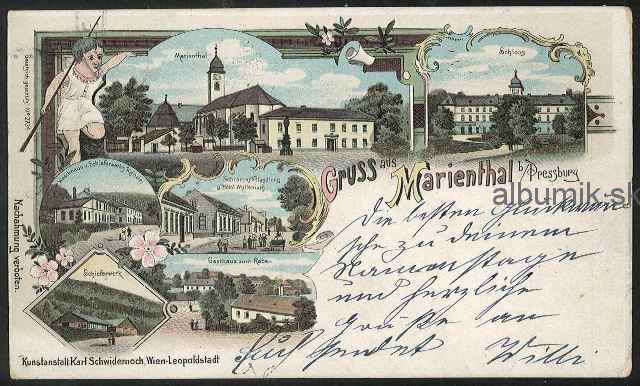 Marienthal
Schloss
Gruss aus
Marienthal b/Pressburg
albumik.sk
Gasthaus zum Rebe
Schieferwerk
Nachahmung verboten.
Kunstanstalt Karl Schwidernoch, Wien-Leopoldstadt
Die besten Glückwün
sche zu deinem
Namenstage
und herzliche
Grüße an
Euch sendet Willi